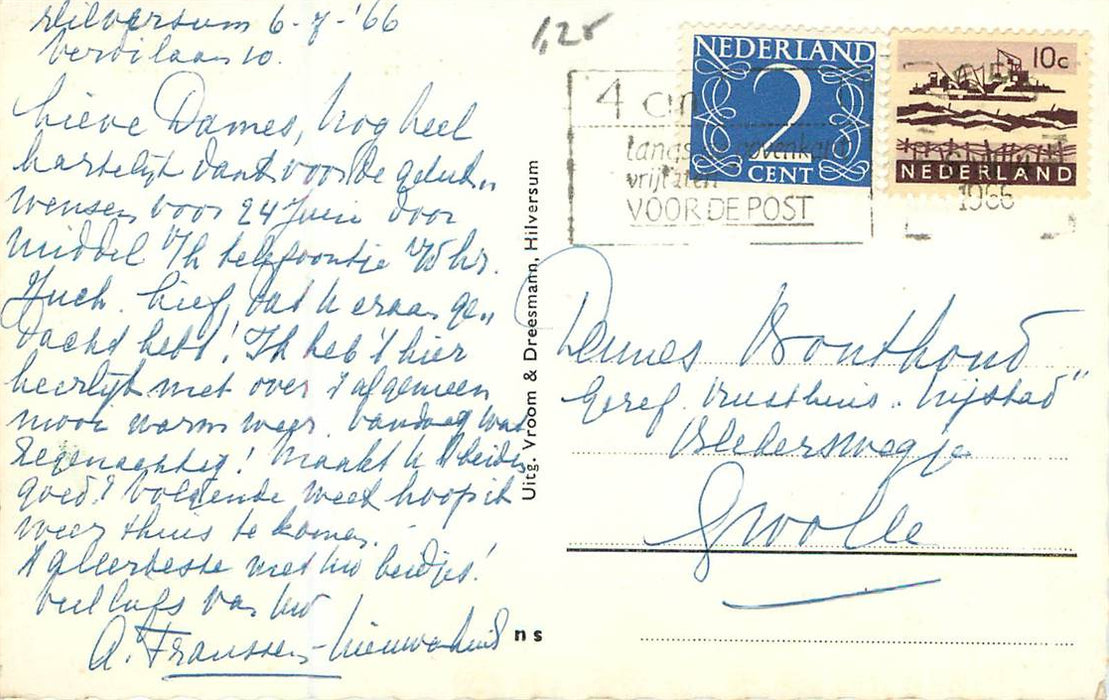 Hilversum 6-7-'66
Verdilaan 10.
Lieve Dames, Nog heel
hartelijk dank voor de geluk-
wensen voor 24 Juni door
middel v/h telefoontje v/d hr.
Juch. Lief, dat U eraan ge-
dacht hebt! Ik heb 't hier
heerlijk met over 't algemeen
mooi warm weer. Vandaag was
regenachtig! Maakt U 't beiden
goed? Volgende week hoop ik
weer thuis te komen.
't allerbeste met Uw beidjes!
Veel liefs van Uw
A. Franssen-
1,25
NEDERLAND
2
CENT
10c
NEDERLAND
4 cm
langs bovenkant
vrijlaten
VOOR DE POST
1966
Uitg. Vroom & Dreesmann, Hilversum
Dames Bonthond
Geref. rusthuis "Nijstad"
Zwolle
ns